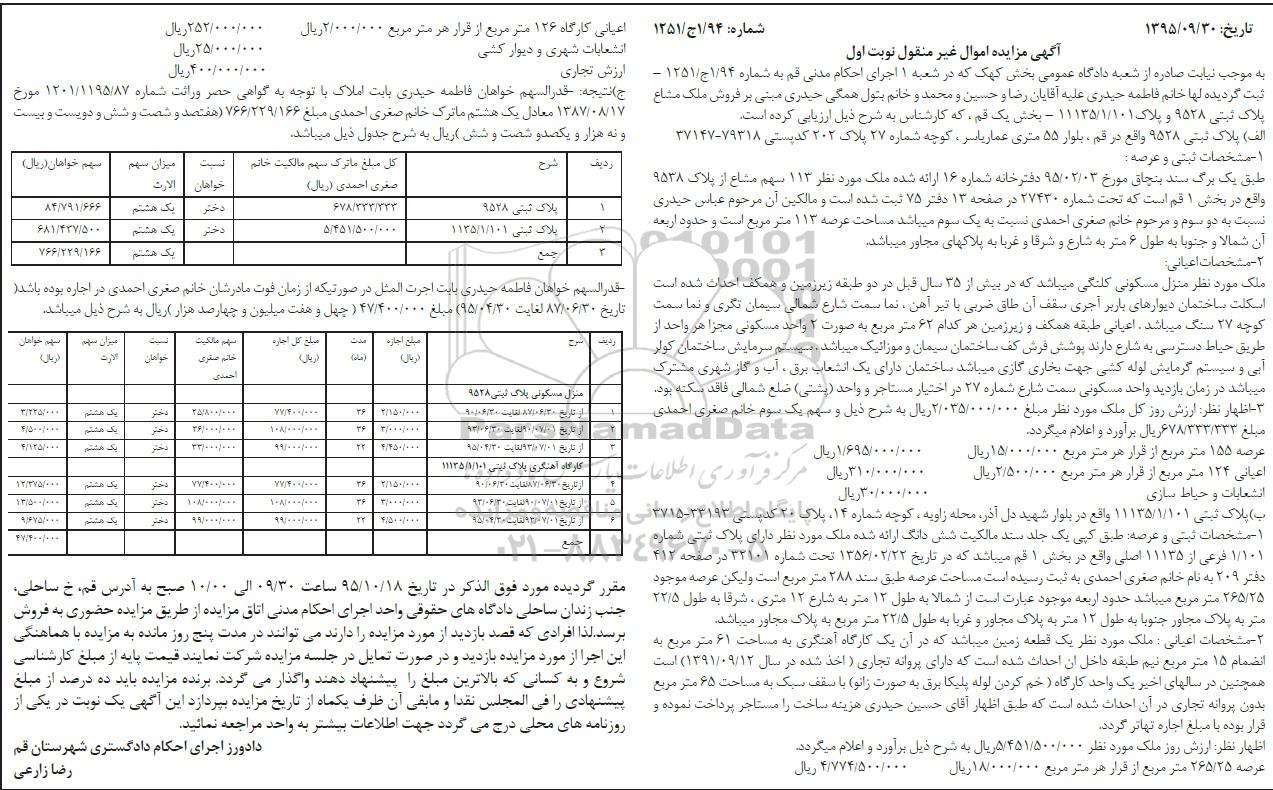 تاریخ: ۱۳۹۵/۰۹/۳۰ شماره: ۱/۹۴ج/۱۲۵۱
آگهی مزایده اموال غیر منقول نوبت اول
به موجب نیابت صادره از شعبه دادگاه عمومی بخش کهک که در شعبه ۱ اجرای احکام مدنی قم به شماره ۱/۹۴ج/۱۲۵۱ –
ثبت گردیده لها خانم فاطمه حیدری علیه آقایان رضا و حسین و محمد و خانم بتول همگی حیدری مبنی بر فروش ملک مشاع
پلاک ثبتی ۹۵۲۸ و پلاک۱۱۱۳۵/۱/۱۰۱ – بخش یک قم ، که کارشناس به شرح ذیل ارزیابی کرده است.
الف) پلاک ثبتی ۹۵۲۸ واقع در قم ، بلوار ۵۵ متری عماریاسر ، کوچه شماره ۲۷ پلاک ۲۰۲ کدپستی ۷۹۳۱۸-۳۷۱۴۷
۱-مشخصات ثبتی و عرصه :
طبق یک برگ سند بنچاق مورخ ۹۵/۰۲/۰۳ دفترخانه شماره ۱۶ ارائه شده ملک مورد نظر ۱۱۳ سهم مشاع از پلاک ۹۵۳۸
واقع در بخش ۱ قم است که تحت شماره ۲۷۴۳۰ در صفحه ۱۳ دفتر ۷۵ ثبت شده است و مالکین آن مرحوم عباس حیدری
نسبت به دو سوم و مرحوم خانم صغری احمدی نسبت به یک سوم میباشد مساحت عرصه ۱۱۳ متر مربع است و حدود اربعه
آن شمالا و جنوبا به طول ۶ متر به شارع و شرقا و غربا به پلاکهای مجاور میباشد.
۲-مشخصات اعیانی:
ملک مورد نظر منزل مسکونی کلنگی میباشد که در بیش از ۳۵ سال قبل در دو طبقه زیرزمین و همکف احداث شده است
اسکلت ساختمان دیوارهای باربر آجری سقف آن طاق ضربی با تیر آهن ، نما سمت شارع شمالی سیمان تگری و نما سمت
کوچه ۲۷ سنگ میباشد . اعیانی طبقه همکف و زیرزمین هر کدام ۶۲ متر مربع به صورت ۲ واحد مسکونی مجزا هر واحد از
طریق حیاط دسترسی به شارع دارند پوشش فرش کف ساختمان سیمان و موزائیک میباشد . سیستم سرمایش ساختمان کولر
آبی و سیستم گرمایش لوله کشی جهت بخاری گازی میباشد ساختمان دارای یک انشعاب برق ، آب و گاز شهری مشترک
میباشد در زمان بازدید واحد مسکونی سمت شارع شماره ۲۷ در اختیار مستاجر و واحد (پشتی) ضلع شمالی فاقد سکنه بود.
۳-اظهار نظر: ارزش روز کل ملک مورد نظر مبلغ ۲/۰۳۵/۰۰۰/۰۰۰ریال به شرح ذیل و سهم یک سوم خانم صغری احمدی
مبلغ ۶۷۸/۳۳۳/۳۳۳ریال برآورد و اعلام میگردد.
عرصه ۱۵۵ متر مربع از قرار هر متر مربع ۱۵/۰۰۰/۰۰۰ریال ۱/۶۹۵/۰۰۰/۰۰۰ریال
اعیانی ۱۲۴ متر مربع از قرار هر متر مربع ۲/۵۰۰/۰۰۰ریال ۳۱۰/۰۰۰/۰۰۰ریال
انشعابات و حیاط سازی ۳۰/۰۰۰/۰۰۰ریال
ب)پلاک ثبتی ۱۱۱۳۵/۱/۱۰۱ واقع در بلوار شهید دل آذر، محله زاویه ، کوچه شماره ۱۴، پلاک ۲۰ کدپستی ۳۳۱۹۳-۳۷۱۵
۱-مشخصات ثبتی و عرصه: طبق کپی یک جلد سند مالکیت شش دانگ ارائه شده ملک مورد نظر دارای پلاک ثبتی شماره
۱/۱۰۱ فرعی از ۱۱۱۳۵ اصلی واقع در بخش ۱ قم میباشد که در تاریخ ۱۳۵۶/۰۲/۲۲ تحت شماره ۳۲۱۰۱ در صفحه ۴۱۲
دفتر ۲۰۹ به نام خانم صغری احمدی به ثبت رسیده است مساحت عرصه طبق سند ۲۸۸ متر مربع است ولیکن عرصه موجود
۲۶۵/۲۵ متر مربع میباشد حدود اربعه موجود عبارت است از شمالا به طول ۱۲ متر به شارع ۱۲ متری ، شرقا به طول ۲۲/۵
متر به پلاک مجاور جنوبا به طول ۱۲ متر به پلاک مجاور و غربا به طول ۲۲/۵ متر مربع به پلاک مجاور میباشد.
۲-مشخصات اعیانی : ملک مورد نظر یک قطعه زمین میباشد که در آن یک کارگاه آهنگری به مساحت ۶۱ متر مربع به
انضمام ۱۵ متر مربع نیم طبقه داخل ان احداث شده است که دارای پروانه تجاری ( اخذ شده در سال ۱۳۹۱/۰۹/۱۲) است
همچنین در سالهای اخیر یک واحد کارگاه ( خم کردن لوله پلیکا برق به صورت زانو) با سقف سبک به مساحت ۶۵ متر مربع
بدون پروانه تجاری در آن احداث شده است که طبق اظهار آقای حسین حیدری هزینه ساخت را مستاجر پرداخت نموده و
قرار بوده با مبلغ اجاره تهاتر گردد.
اظهار نظر: ارزش روز ملک مورد نظر ۵/۴۵۱/۵۰۰/۰۰۰ریال به شرح ذیل برآورد و اعلام میگردد.
عرصه ۲۶۵/۲۵ متر مربع از قرار هر متر مربع ۱۸/۰۰۰/۰۰۰ریال ۴/۷۷۴/۵۰۰/۰۰۰ ریال
اعیانی کارگاه ۱۲۶ متر مربع از قرار هر متر مربع ۲/۰۰۰/۰۰۰ریال ۲۵۲/۰۰۰/۰۰۰ریال
انشعابات شهری و دیوار کشی ۲۵/۰۰۰/۰۰۰ریال
ارزش تجاری ۴۰۰/۰۰۰/۰۰۰ریال
ج)نتیجه: -قدرالسهم خواهان فاطمه حیدری بابت املاک با توجه به گواهی حصر وراثت شماره ۱۲۰۱/۱۱۹۵/۸۷ مورخ
۱۳۸۷/۰۸/۱۷ معادل یک هشتم ماترک خانم صغری احمدی مبلغ ۷۶۶/۲۲۹/۱۶۶ (هفتصد و شصت و شش و دویست و بیست
و نه هزار و یکصدو شصت و شش )ریال به شرح جدول ذیل میباشد.
ردیف شرح کل مبلغ ماترک سهم مالکیت خانم صغری احمدی (ریال) نسبت خواهان میزان سهم الارث سهم خواهان(ریال)
۱ پلاک ثبتی ۹۵۲۸ ۶۷۸/۳۳۳/۳۳۳ دختر یک هشتم ۸۴/۷۹۱/۶۶۶
۲ پلاک ثبتی ۱۱۳۵/۱/۱۰۱ ۵/۴۵۱/۵۰۰/۰۰۰ دختر یک هشتم ۶۸۱/۴۳۷/۵۰۰
۳ جمع یک هشتم ۷۶۶/۲۲۹/۱۶۶
-قدرالسهم خواهان فاطمه حیدری بابت اجرت المثل در صورتیکه از زمان فوت مادرشان خانم صغری احمدی در اجاره بوده باشد(
تاریخ ۸۷/۰۶/۳۰ لغایت ۹۵/۰۴/۳۰) مبلغ ۴۷/۴۰۰/۰۰۰ ( چهل و هفت میلیون و چهارصد هزار )ریال به شرح ذیل میباشد.
ردیف شرح مبلغ اجاره (ریال) مدت (ماه) مبلغ کل اجاره (ریال) سهم مالکیت خانم صغری احمدی نسبت خواهان میزان سهم الارث سهم خواهان (ریال)
منزل مسکونی پلاک ثبتی۹۵۲۸
۱ از تاریخ ۸۷/۰۶/۳۰ لغایت ۹۰/۰۶/۳۰ ۲/۱۵۰/۰۰۰ ۳۶ ۷۷/۴۰۰/۰۰۰ ۲۵/۸۰۰/۰۰۰ دختر یک هشتم ۳/۲۲۵/۰۰۰
۲ از تاریخ ۹۰/۰۷/۰۱لغایت ۹۳/۰۶/۳۰ ۳/۰۰۰/۰۰۰ ۳۶ ۱۰۸/۰۰۰/۰۰۰ ۳۶/۰۰۰/۰۰۰ دختر یک هشتم ۴/۵۰۰/۰۰۰
۳ از تاریخ ۹۳/۰۷/۰۱لغایت ۹۵/۰۴/۳۰ ۴/۴۵۰/۰۰۰ ۲۲ ۹۹/۰۰۰/۰۰۰ ۳۳/۰۰۰/۰۰۰ دختر یک هشتم ۴/۱۲۵/۰۰۰
کارگاه آهنگری پلاک ثبتی ۱۱۱۳۵/۱/۱۰۱
۴ ازتاریخ۸۷/۰۶/۳۰لغایت۹۰/۰۶/۳۰ ۲/۱۵۰/۰۰۰ ۳۶ ۷۷/۴۰۰/۰۰۰ ۷۷/۴۰۰/۰۰۰ دختر یک هشتم ۱۲/۳۷۵/۰۰۰
۵ از تاریخ۹۰/۰۷/۰۱لغایت۹۳/۰۶/۳۰ ۳/۰۰۰/۰۰۰ ۳۶ ۱۰۸/۰۰۰/۰۰۰ ۱۰۸/۰۰۰/۰۰۰ دختر یک هشتم ۱۳/۵۰۰/۰۰۰
۶ از تاریخ۹۳/۰۷/۰۱لغایت۹۵/۰۴/۳۰ ۴/۵۰۰/۰۰۰ ۲۲ ۹۹/۰۰۰/۰۰۰ ۹۹/۰۰۰/۰۰۰ دختر یک هشتم ۹/۶۷۵/۰۰۰
جمع ۴۷/۴۰۰/۰۰۰
مقرر گردیده مورد فوق الذکر در تاریخ ۹۵/۱۰/۱۸ ساعت ۰۹/۳۰ الی ۱۰/۰۰ صبح به آدرس قم، خ ساحلی،
جنب زندان ساحلی دادگاه های حقوقی واحد اجرای احکام مدنی اتاق مزایده از طریق مزایده حضوری به فروش
برسد.لذا افرادی که قصد بازدید از مورد مزایده را دارند می توانند در مدت پنج روز مانده به مزایده با هماهنگی
این اجرا از مورد مزایده بازدید و در صورت تمایل در جلسه مزایده شرکت نمایند قیمت پایه از مبلغ کارشناسی
شروع و به کسانی که بالاترین مبلغ را پیشنهاد دهند واگذار می گردد. برنده مزایده باید ده درصد از مبلغ
پیشنهادی را فی المجلس نقدا و مابقی آن ظرف یکماه از تاریخ مزایده بپردازد این آگهی یک نوبت در یکی از
روزنامه های محلی درج می گردد جهت اطلاعات بیشتر به واحد مراجعه نمائید.
دادورز اجرای احکام دادگستری شهرستان قم
رضا زارعی
ParsNamadData
۰۲۱-۸۸۳۴۹۶۷۰-۵